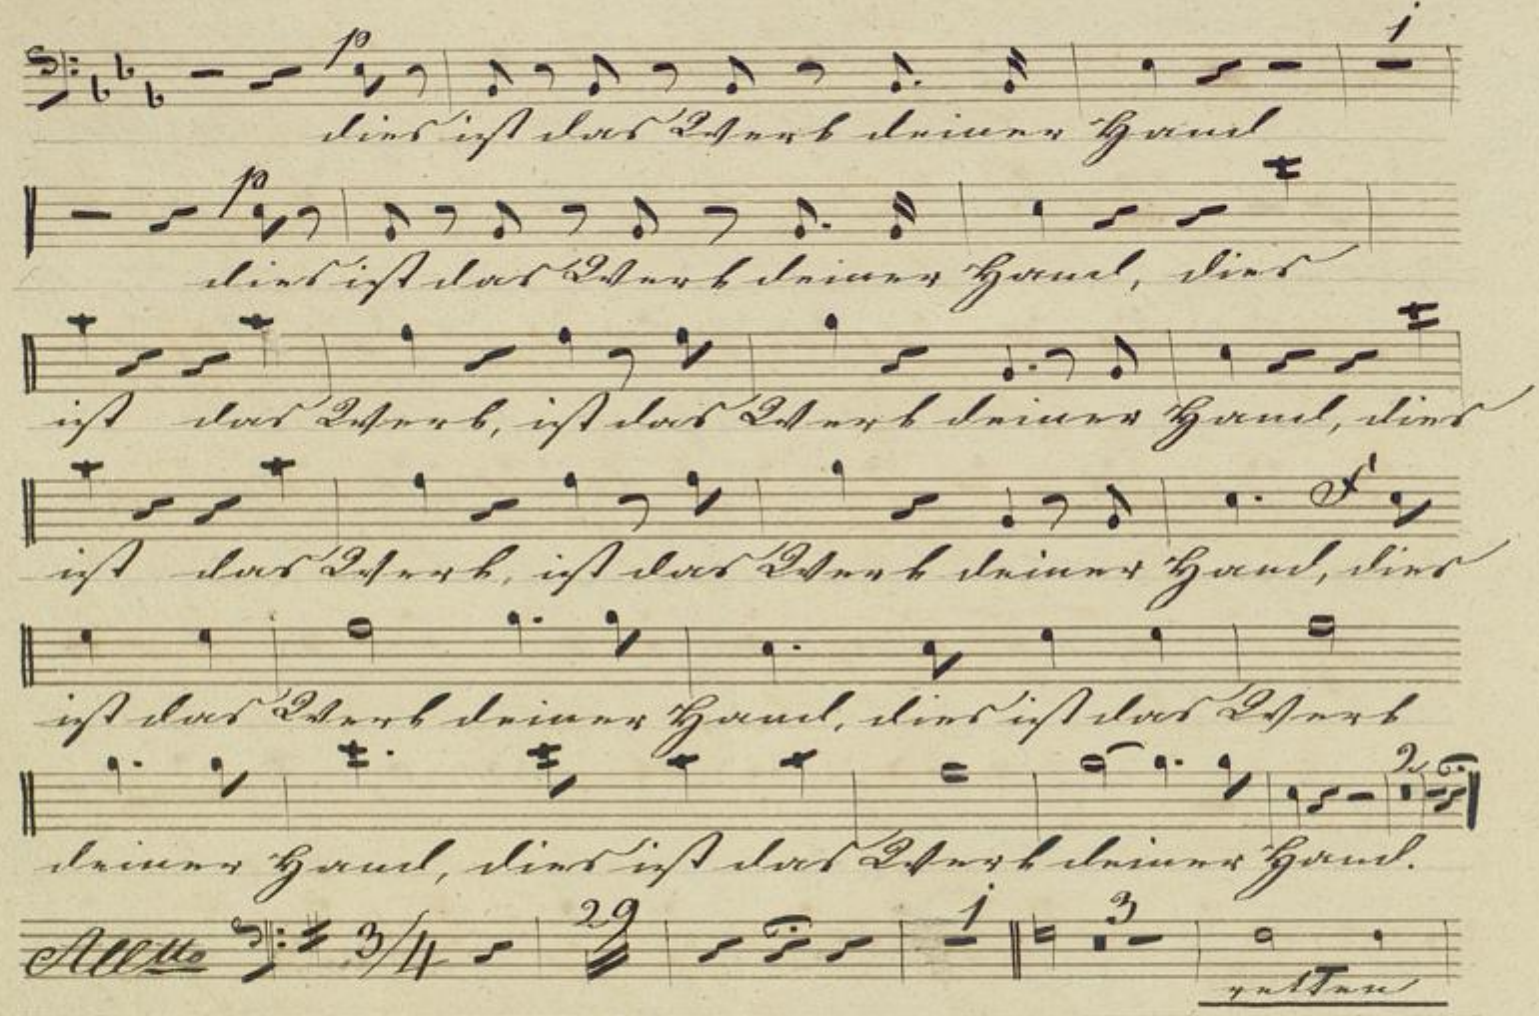 p
1
dies ist das Werk deiner Hand
p
dies ist das Werk deiner Hand, dies
ist das Werk, ist das Werk deiner Hand, dies
f
ist das Werk, ist das Werk deiner Hand, dies
ist das Werk deiner Hand, dies ist das Werk
2
deiner Hand, dies ist das Werk deiner Hand.
Alltto 3/4 29 1 3
retten